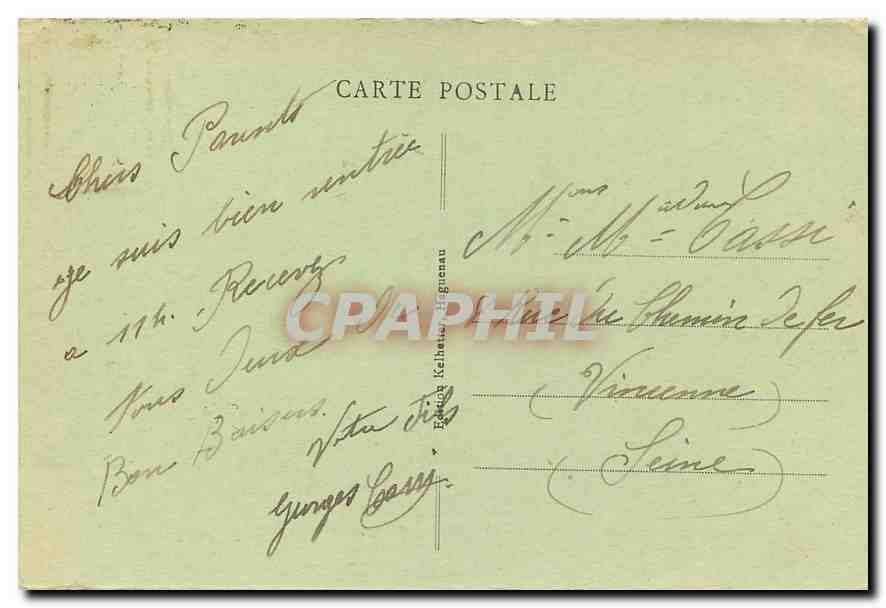 CARTE POSTALE
Chers Parents
Je suis bien rentrée
a 11h. Recevez
Vous Deux De
Bon Baisers.
Votre Fils
Georges Cassi.
Edition Kelhetter, Haguenau
Mons Madame Cassi
Rue du Chemin de fer
(Vincenne)
(Seine)
CPAPHIL